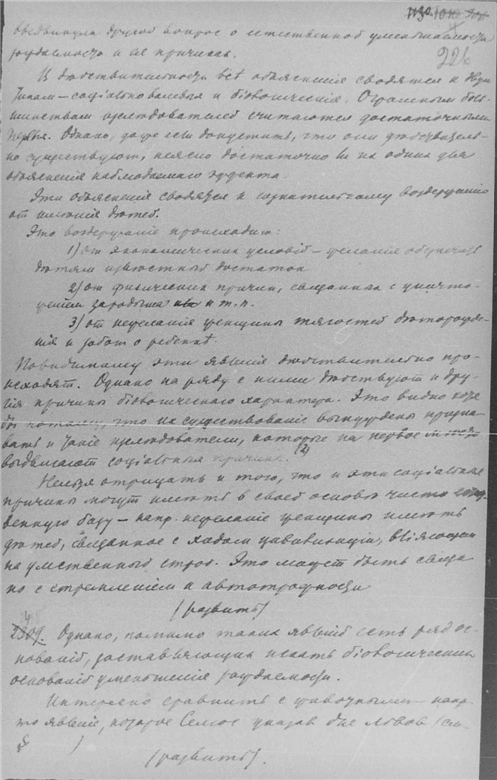 226
выдвинула другой вопрос о естественной уменьшаемости
рождаемости и ее причинах.
В действительности всѣ объяснения сводятся к двум
типам – социального явления и биологическия. Огромным боль-
шинством изследователей считаются достаточными
первыя. Однако, даже если допустить, что они действитель-
но существуют, неясно достаточно ли их одних для
объяснения наблюдаемаго эффекта.
Эти объяснения сводятся к сознательному воздержанию
от имѣния дѣтей.
Это воздержание происходит:
1) от экономических условий – желание обеспечить
дѣтям известный достаток
2) от физических причин, связанных с уничто-
жением зародыша и т.п.
3) от нежелания женщины тягостей дѣторожде-
ния и забот о ребенкѣ.
Повидимому эти явления дѣйствительно про-
исходят. Однако на ряду с ними дѣйствуют и дру-
гия причины биологического характера. Это видно хотя
бы потому, что их существование вынуждены призна-
вать и такие изследователи, которые на первое место
выдвигают социальныя причины. (2)
Нельзя отрицать и того, что и эти социальные
причины могут имѣть в своей основѣ чисто
венную базу – напр. нежелание женщины имѣть
дѣтей, связанное с ходом цивилизации, влияющей
на умственный строй. Это может быть связа-
но с стремлением к автотрофности
(развить)
Однако, помимо таких явлений есть ряд ос-
нований, заставляющих искать биологических
оснований уменьшения рождаемости.
Интересно сравнить с животными – напр.
то явление, которое указав для Львов (см.
§ )
(развить).